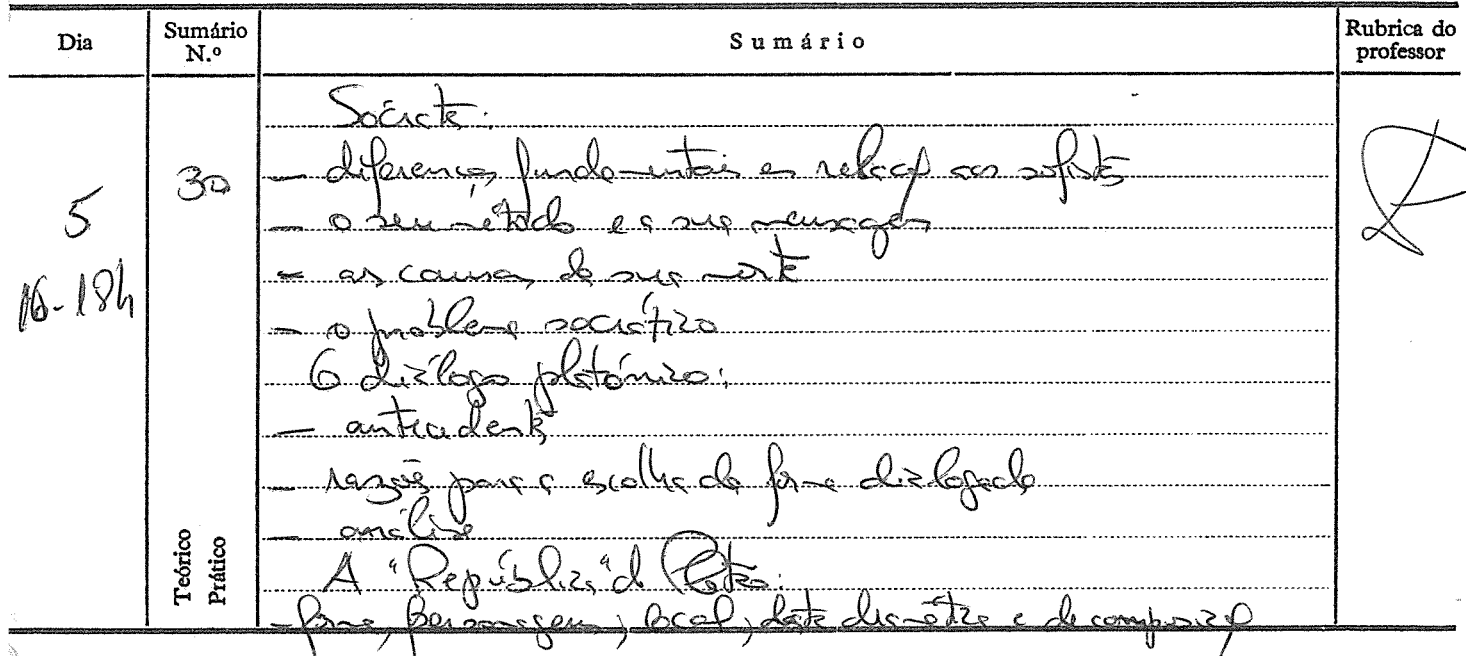 Dia
Sumário N.º
Sumário
Rubrica do professor
5
16-18h
30
Teórico
Prático
Sócrates:
- diferenças fundamentais em relação aos sofistas
- o seu método e a sua mensagem
- as causas da sua morte
- o problema socrático
O diálogo platónico:
- antecedentes
- razões para a escolha da forma dialogada
- análise
A "República" de Platão:
- forma, personagens, local, data dramática e de composição